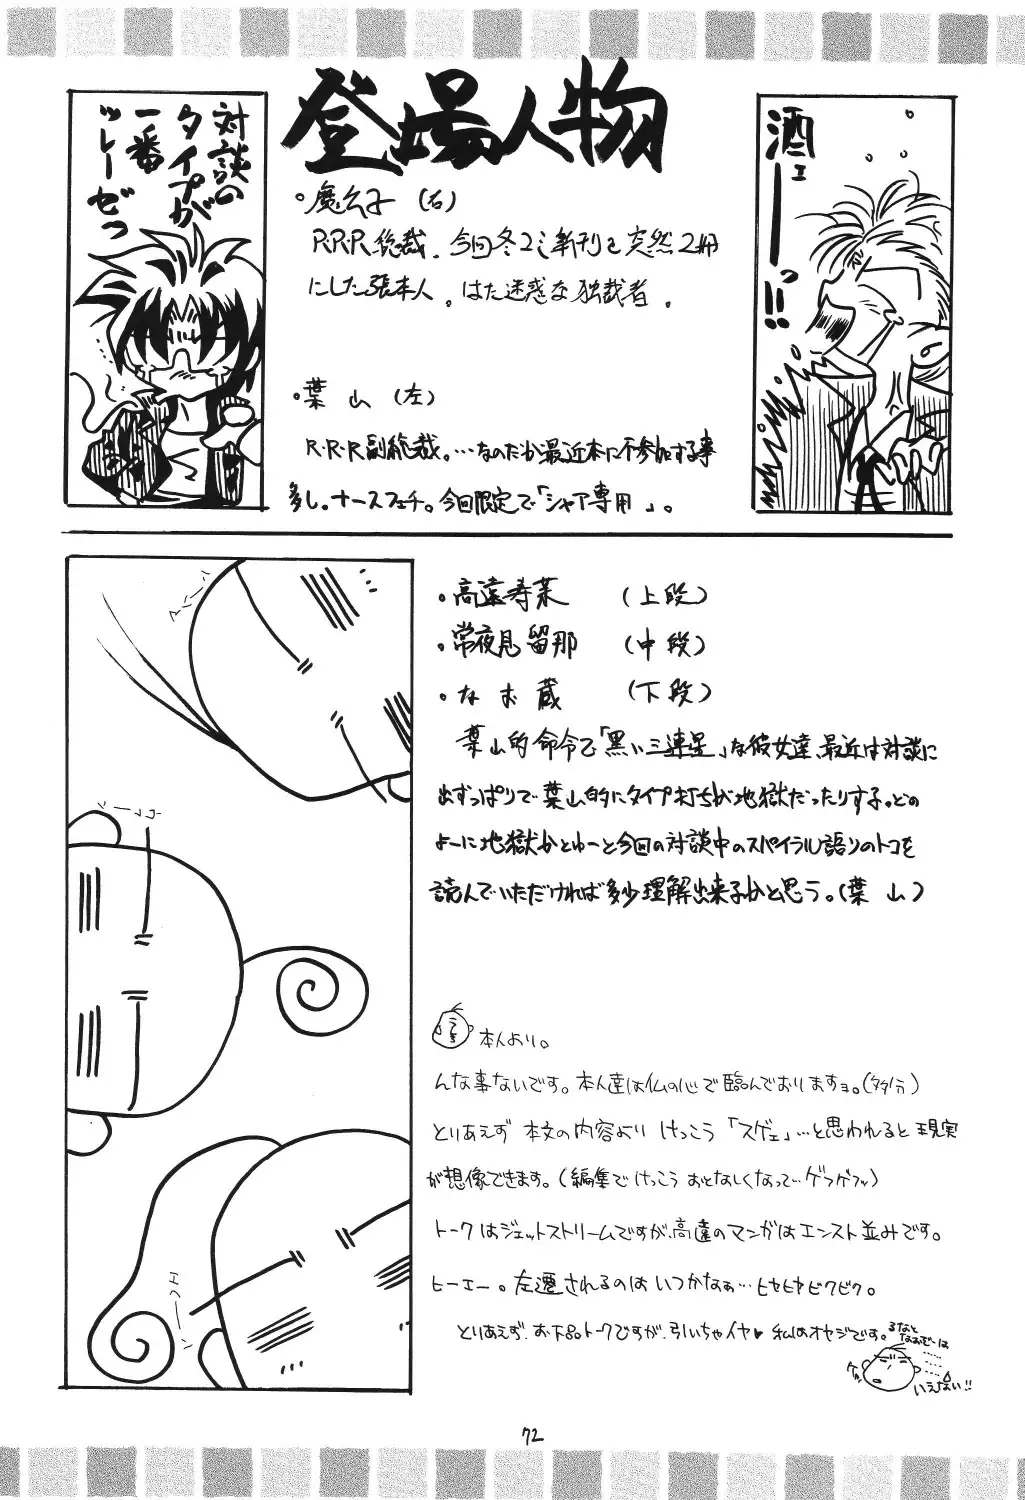 登場人物
対談の
タイプが
一番
ツレーぜっ
酒ェ――っ!!
・魔公子(右)
R.R.R.総裁。今回冬コミ新刊を突然2冊
にした張本人。はた迷惑な独裁者。
・葉山(左)
R・R・R副総裁。…なのだが最近本に不参加する事
多し。ナースフェチ。今回限定で「シャア専用」。
・高遠寿葉 (上段)
・常夜見留那 (中段)
・なお蔵 (下段)
葉山的命令で「黒い三連星」な彼女達、最近は対談に
出ずっぱりで葉山的にタイプ打ちが地獄だったりする。どの
よーに地獄かとゆーと今回の対談中のスパイラル語りのトコを
読んでいただければ多少理解出来るかと思う。(葉山)
本人より。
んな事ないです。本人達は仏の心で臨んでおりますョ。(多分)
とりあえず本文の内容より けっこう「スゲェ」…と思われると現実
が想像できます。(編集でけっこうおとなしくなって…ゲフゲフッ)
トークはジェットストリームですが、高遠のマンガはエンスト並みです。
ヒーエー。左遷されるのはいつかなぁ…ヒヤヒヤビクビク。
とりあえず、お下品トークですが、引いちゃイヤ♥ 私はオヤジです。
るなと
なおぞーは
……
いえない!!
72